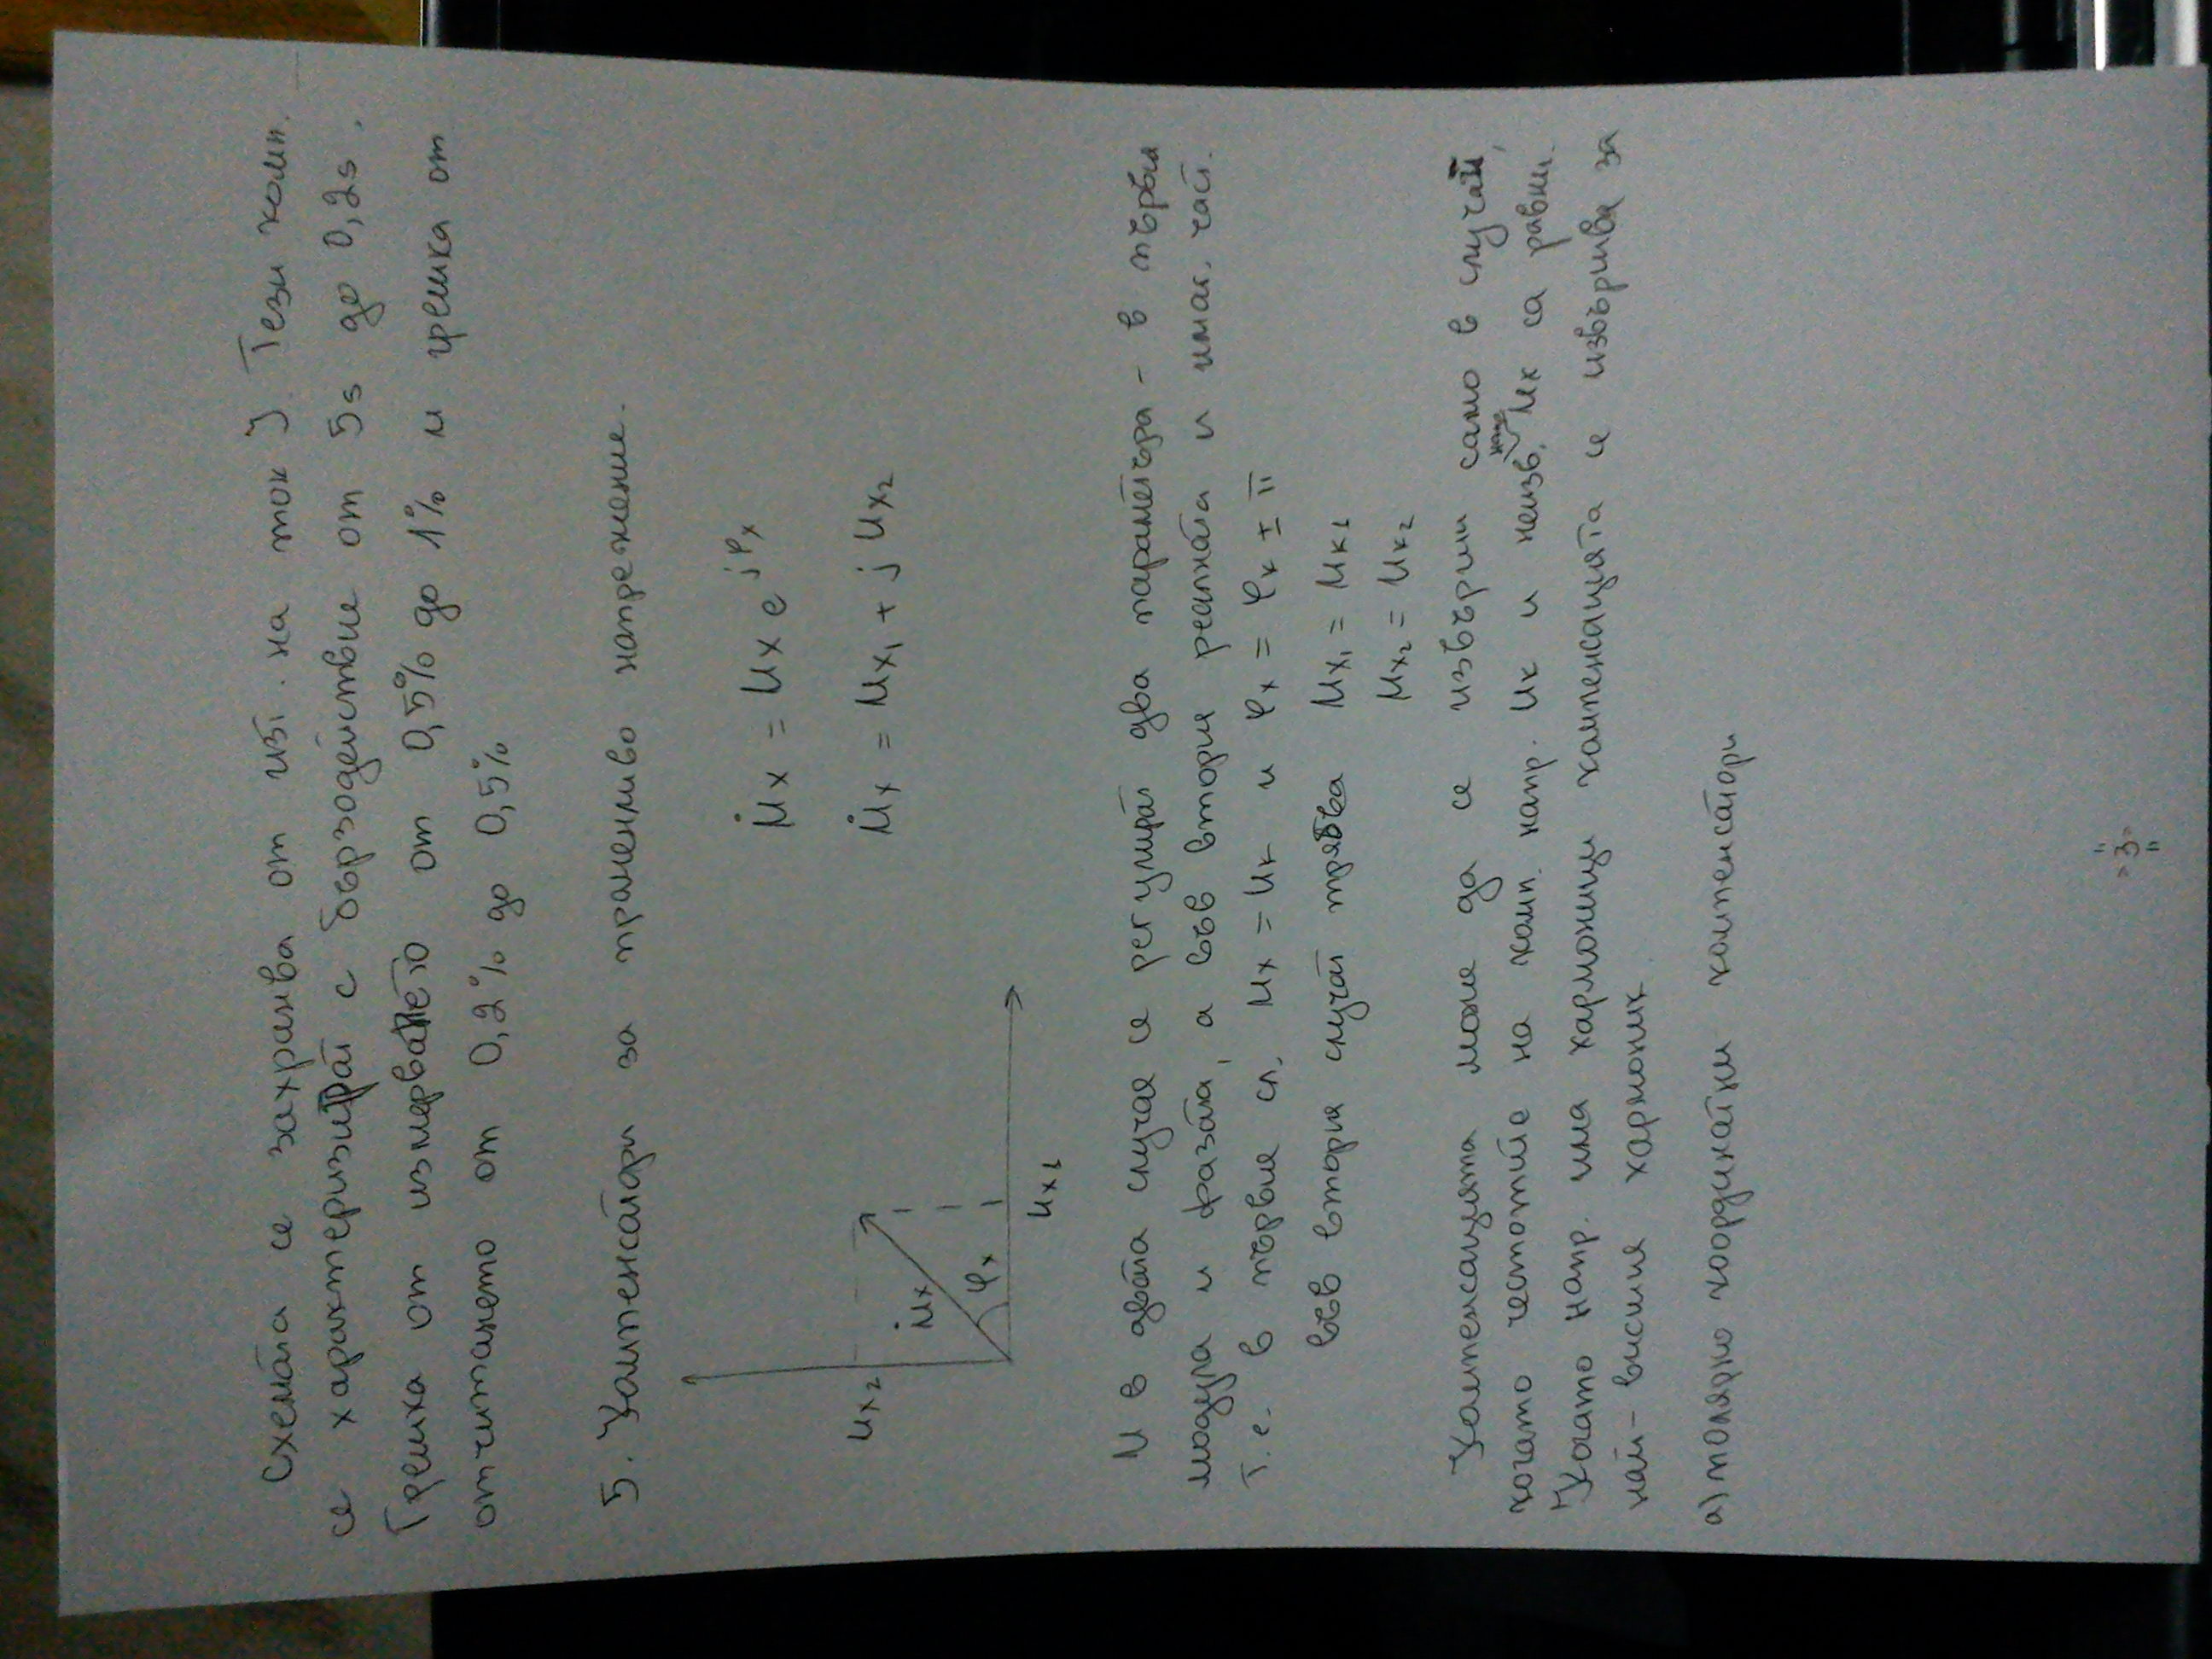 Схемата се захранва от изт. на ток J. Тези комп.
се характеризират с бързодействие от 5s до 0,2s.
Грешка от измерването от 0,5% до 1% и грешка от
отчитането от 0,2% до 0,5%
5. Компенсатори за променливо напрежение.
U̇x = Ux e^jφx
U̇x = Ux1 + j Ux2
Ux2
U̇x
φx
Ux1
И в двата случая се регулират два параметъра - в първия
модула и фазата, а във втория реалната и имаг. част.
Т.е. в първия сл. Ux = Uк и φx = φк ± π
във втория случай трябва Ux1 = Uк1
Ux2 = Uк2
Компенсацията може да се извърши само в случай,
когато честотите на комп. напр. Uк и неизв. напр. Ux са равни.
Когато напр. има хармоници компенсацията се извършва за
най-висшия хармоник
а) полярно координатни компенсатори
"3"